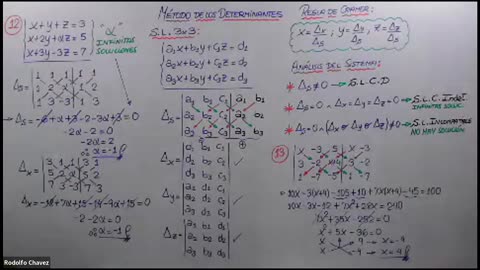 12) x+y+z=3
x+2y+αz=5
x+3y-3z=7
"α"
INFINITAS
SOLUCIONES
Δs= | 1 1 1 | 1 1
1 2 α | 1 2
1 3 -3 | 1 3
-2α-2=0
-2α=2
∴ α=-1
Δx= | 3 1 1 | 3 1
5 2 α | 5 2
7 3 -3 | 7 3
Δx= -18+7α+15-14-9α+15=0
-2-2α=0
∴ α=-1
MÉTODO DE LOS DETERMINANTES
S.L. 3x3:
a1x+b1y+c1z=d1
a2x+b2y+c2z=d2
a3x+b3y+c3z=d3
Δs= | a1 b1 c1 | a1 b1
a2 b2 c2 | a2 b2
a3 b3 c3 | a3 b3
Δx= | d1 b1 c1 |
d2 b2 c2
d3 b3 c3
Δy= | a1 d1 c1 |
a2 d2 c2
a3 d3 c3
Δz= | a1 b1 d1 |
a2 b2 d2
a3 b3 d3
REGLA DE CRAMER:
x=Δx/Δs ; y=Δy/Δs ; z=Δz/Δs
ANÁLISIS DEL SISTEMA:
* Δs≠0 → S.L.C.D
* Δs=0 ∧ Δx=Δy=Δz=0 → S.L.C. INDET.
INFINITAS SOLUC.
* Δs=0 ∧ (Δx ∨ Δy ∨ Δz)≠0 → S.L. INCOMPATIBLE
NO HAY SOLUCIÓN
13)
10x-3x-12+7x²+28x=240
7x²+35x-252=0
x²+5x-36=0
x 9 → x=-9
x -4 → x=4
Rodolfo Chavez